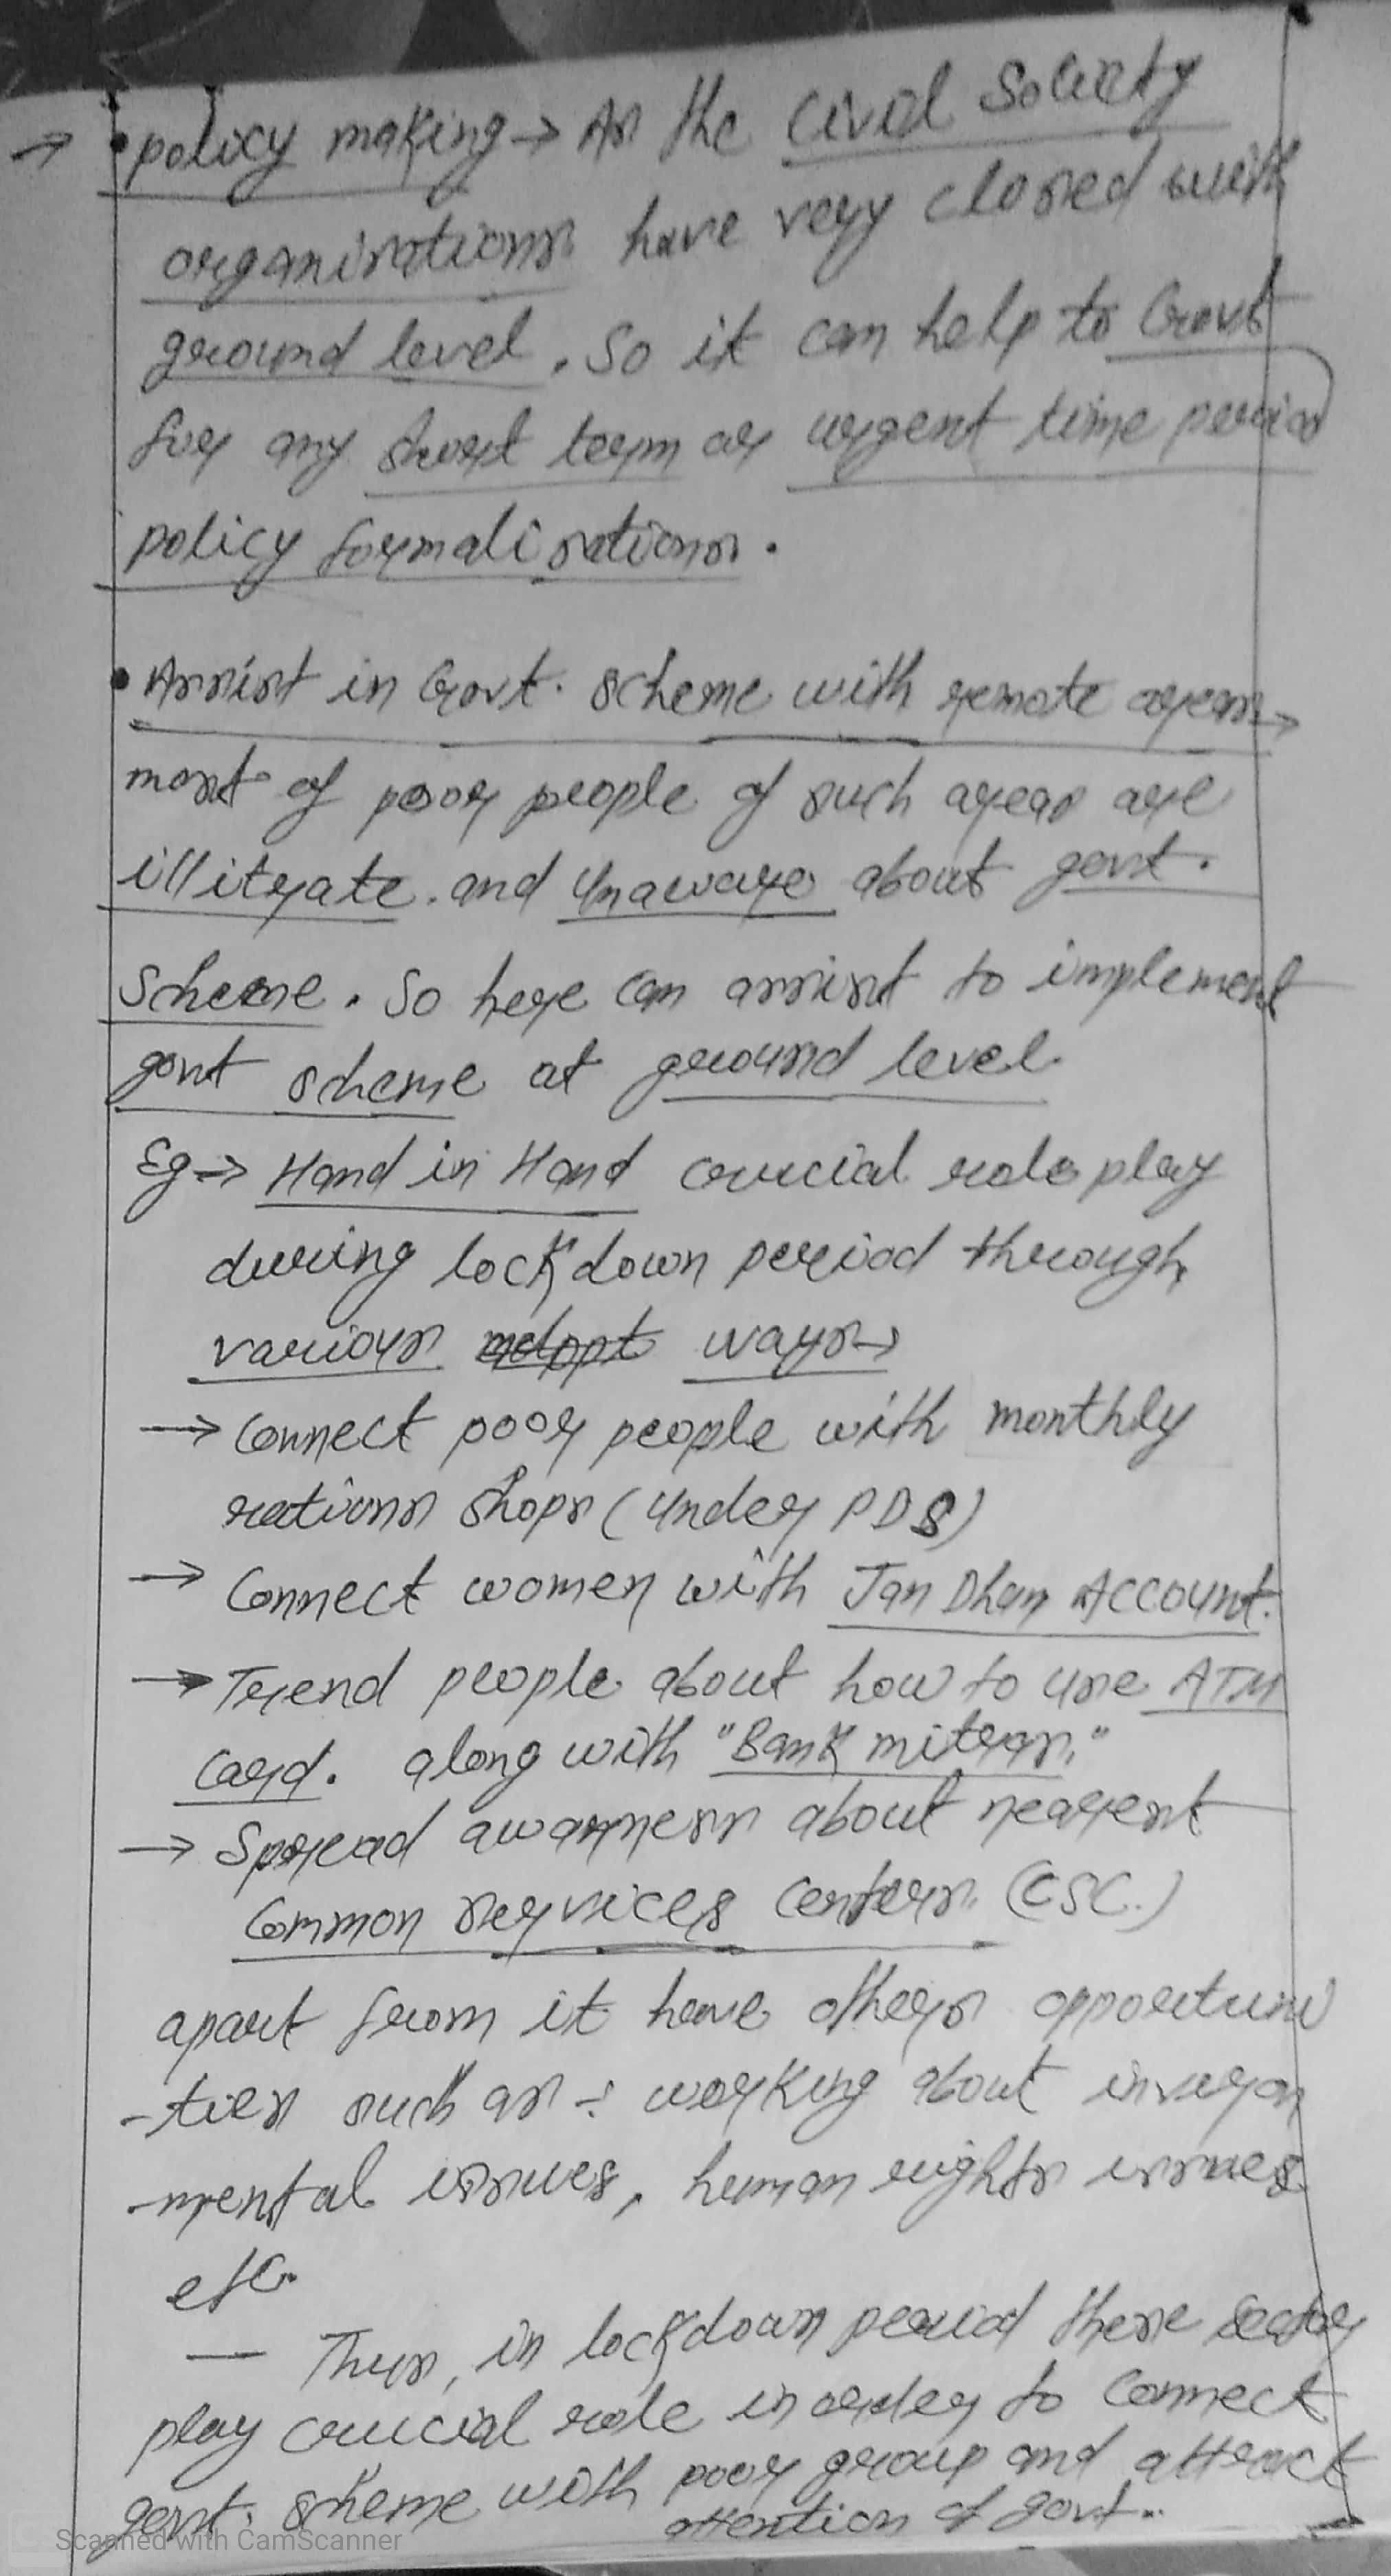 → • policy making → As the Civil Society
organisations have very closed with
ground level. So it can help to Govt
for any short term or urgent time period
policy formalisations.
• Assist in Govt. scheme with remote areas →
most of poor people of such areas are
illitrate. and unaware about govt.
Scheme. So here can assist to implement
govt scheme at ground level
Eg → Hand in Hand crucial role play
during lockdown period through
various ways →
→ Connect poor people with monthly
rations shops (under PDS)
→ Connect women with Jan Dhan Account.
→ Trend people about how to use ATM
Card. along with "Bank mitras."
→ Spread awarness about nearest
Common services centers (CSC.)
apart from it have others opportuni
-ties such as :- working about inviron
-mental issues, human rights issues
etc.
— Thus, in lockdown period these sector
play crucial role in order to connect
govt. scheme with poor group and attract
attention of govt..
Scanned with CamScanner